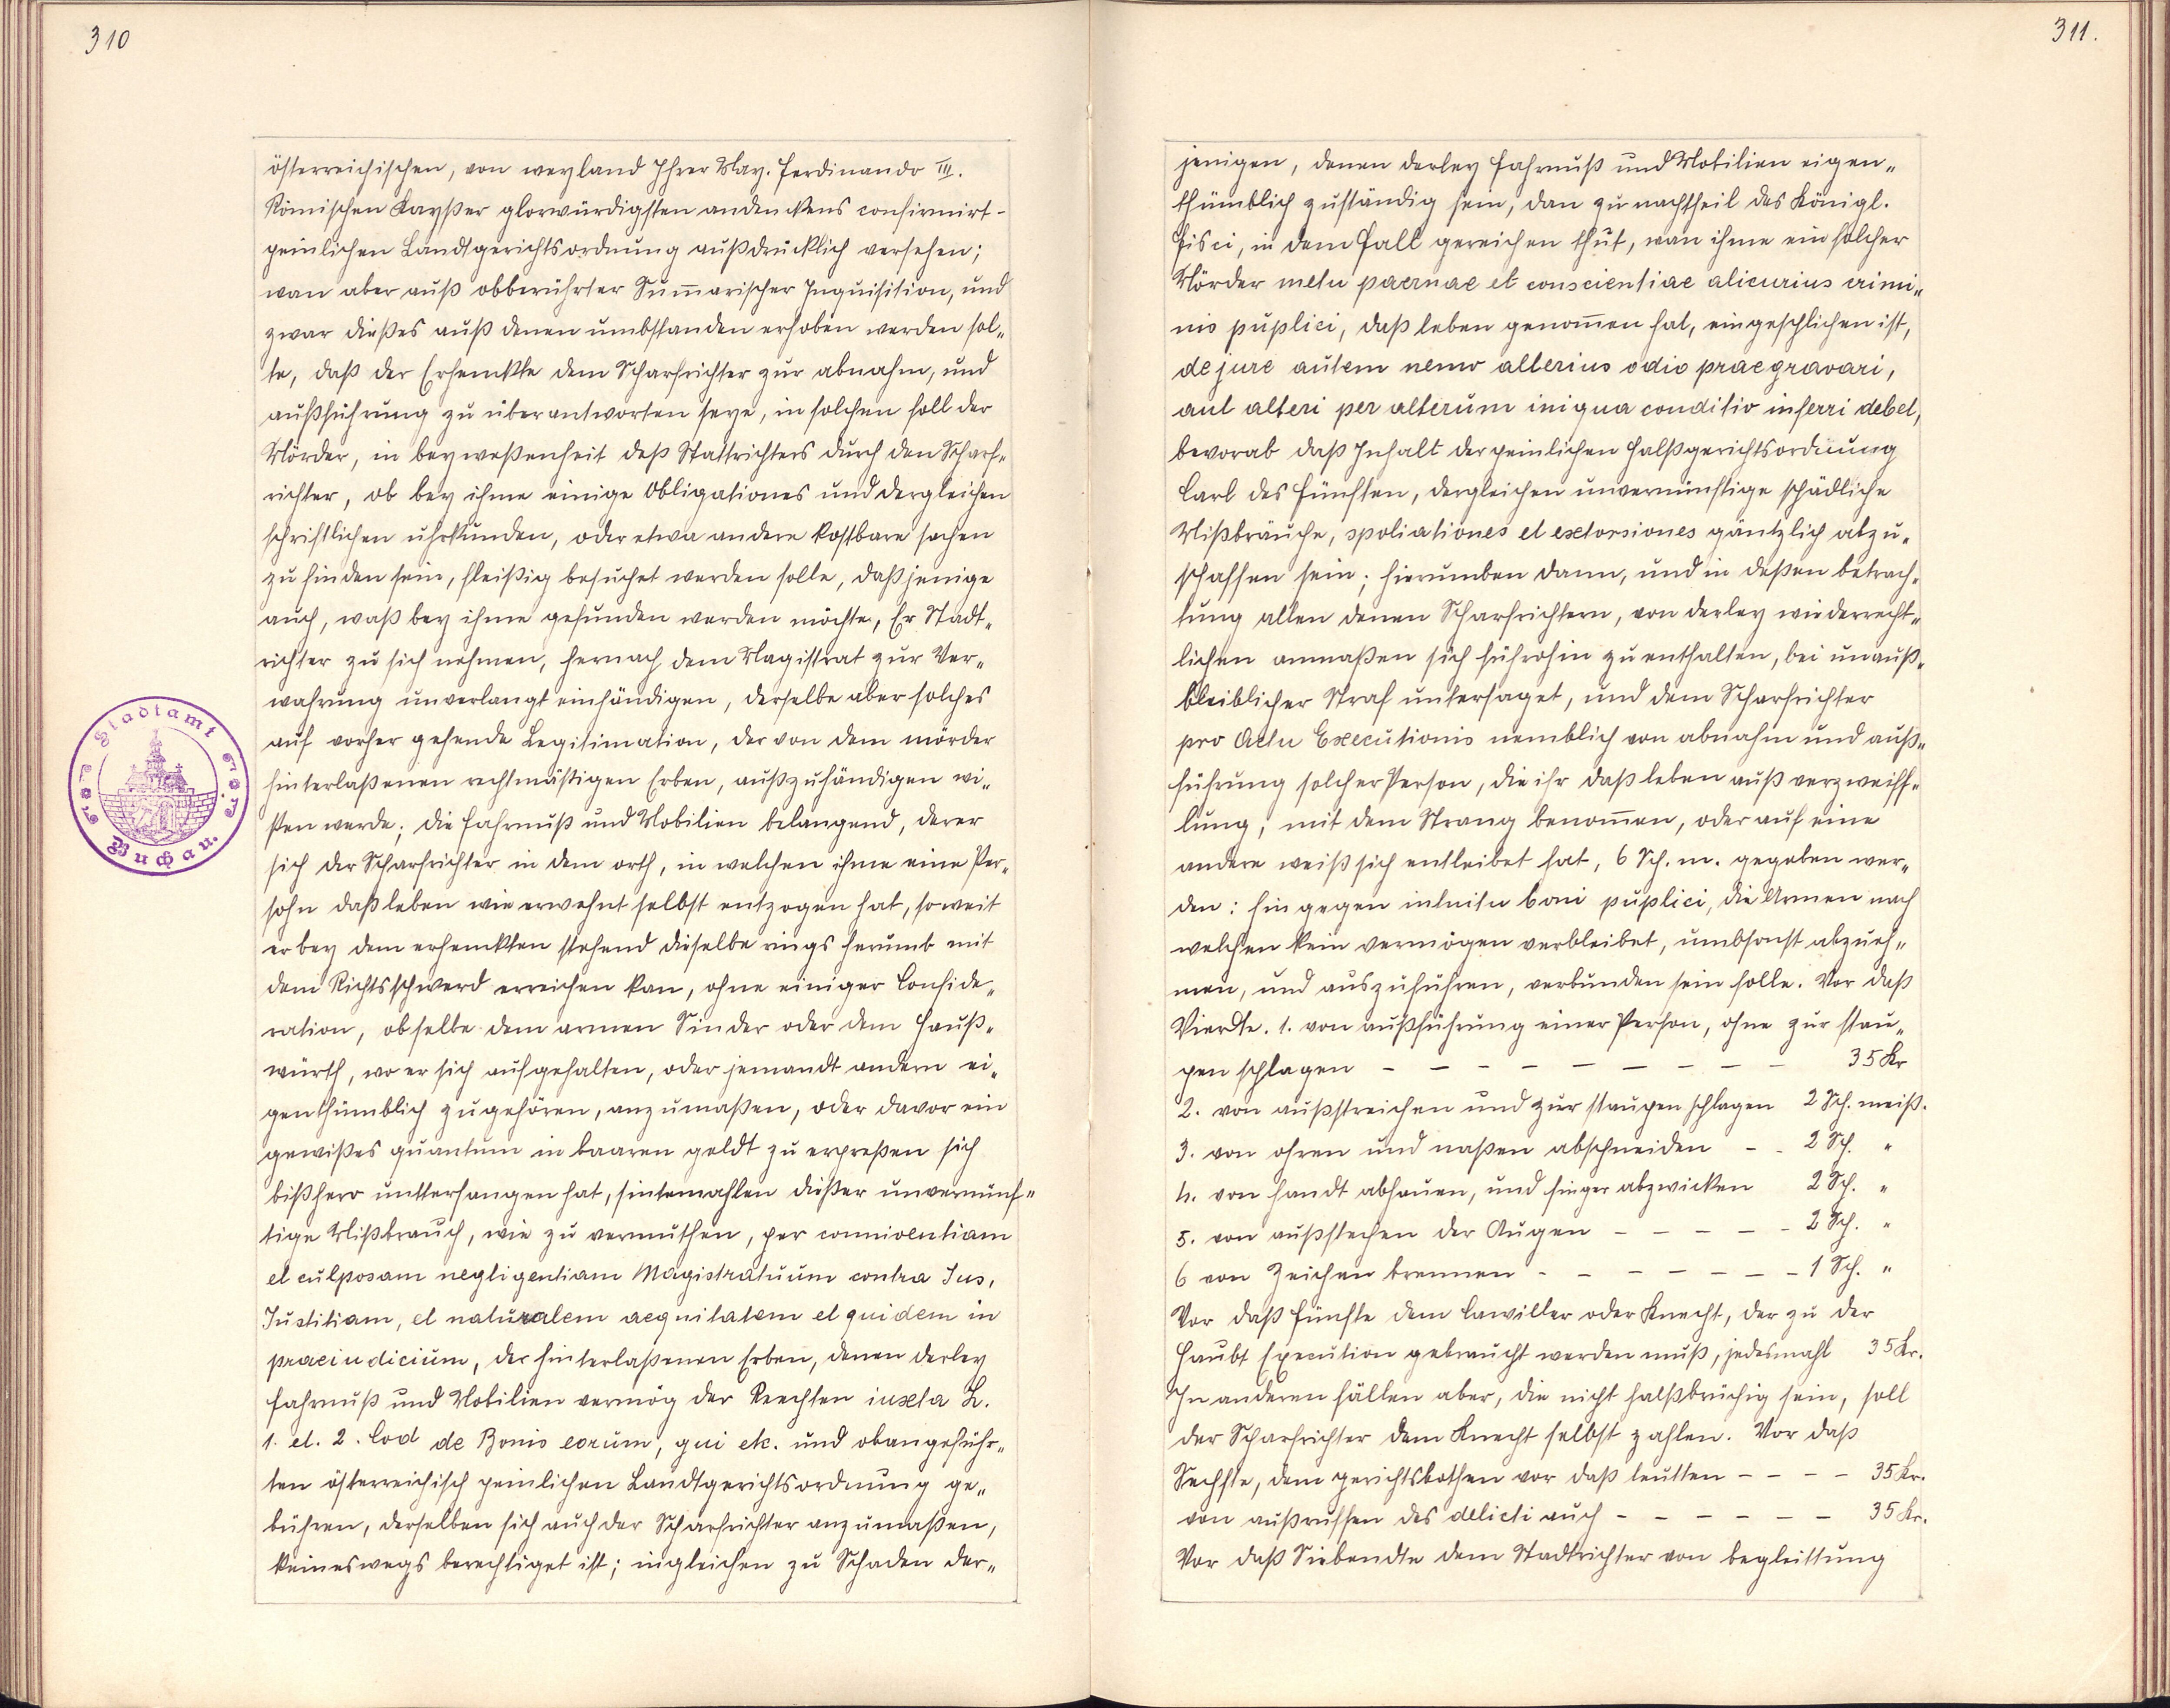 310
österreichischen, von weyland Ihrer May. Ferdinando III.
Römischen Kayßer glorwürdigsten andenckens confirmirt-
peinlichen Landtgerichtsordnung außdrücklich versehen;
wan aber auß obberührter Sum̄arischer Inquisition, und
zwar dießes auß denen umbständen erhoben werden sol„
te, daß der Erhenckte dem Scharfrichter zur abnahm, und
außführung zu überantworten seye, in solchen soll der
Mörder, in beyweßenheit deß Stattrichters durch den Scharf„
richter, ob bey ihme einige Obligationes und dergleichen
schriftlichen uhrkunden, oder etwa andere kostbare sachen
zu finden sein, fleißig besuchet werden solle, daßjenige
auch, waß bey ihme gefunden werden möchte, Er Stadt„
richter zu sich nehmen, hernach dem Magistrat zur Ver„
wahrung unverlangt einhändigen, derselbe aber solches
auf vorher gehende Legitimation, der von dem mörder
hinterlaßenen rechtmäßigen Erben, außzuhändigen wi„
ßen werde; die Fahrnuß und Mobilien belangend, derer
sich der Scharfrichter in dem orth, in welchen ihme eine Per„
sohn daß leben wie erwehnt selbst entzogen hat, so weit
er bey dem erhenckten stehend dieselbe rings herumb mit
dem Richtsschwerd erreichen kan, ohne einiger Conside„
ration, ob selbe dem armen Sinder oder dem Hauß„
würth, wo er sich aufgehalten, oder jemandt andern ei„
genthümblich zugehören, anzumaßen, oder davor ein
gewißes quantum in baaren geldt zu erpreßen sich
bißhero unterfangen hat, sintemahlen dießer unvernünf„
tige Mißbrauch, wie zu vermuthen, per conniventiam
et culposam negligentiam Magistratuum contra Jus,
Justitiam, et naturalem aequitatem et quidem in
praeiudicium, der hinterlaßenen Erben, denen derley
Fahrnuß und Mobilien vermög der Rechten iuxta L.
1. et. 2. Cod de Bonis eorum, qui etc. und obangeführ„
ten österreichisch peinlichen Landtgerichtsordnung ge„
bühren, derselben sich auch der Scharfrichter anzumaßen,
keineswegs berechtiget ist; ingleichen zu Schaden der„
Stadtamt
Buchau.
311.
jenigen, denen derley Fahrnuß und Mobilien eigen„
thümblich zuständig sein, dan zu nachtheil des Königl.
Fisci, in dem Fall gereichen thut, wan ihme ein solcher
Mörder metu paenae et conscientiae alicurius crimi„
nis puplici, daß leben genom̄en hat, eingeschlichen ist,
de jure autem nemo alterius odio praegravari,
aut alteri per alterum iniqua conditio inferri debet,
bevorab daß Inhalt der peinlichen Halßgerichtsordnung
Carl des Fünften, dergleichen unvernünftige schädliche
Mißbräuche, spoliationes et extorsiones gäntzlich abzu„
schaffen sein; hierumben dann, und in deßen betrach„
tung allen denen Scharfrichtern, von derley wiederrecht„
lichen anmaßen sich führohin zu enthalten, bei unauß„
bleiblicher Straf untersaget, und dem Scharfrichter
pro Actu Executionis nemblich von abnahm und auß„
führung solcher Person, die ihr daß leben auß verzweiff„
lung, mit dem Strang benom̄en, oder auf eine
andere weiß sich entleibet hat, 6 Sch. m. gegeben wer„
den: hingegen intuitu boni puplici, die Armen nach
welchen kein vermögen verbleibet, umbsonst abzueh„
men, und auszuführen, verbunden sein solle. Vor daß
Vierdte. 1. von außführung einer Person, ohne zur stau„
pen schlagen – – – – – – – – – 35 Kr
2. von außstreichen und zur staupen schlagen 2 Sch. meiß.
3. von ohren und naßen abschneiden – – 2 Sch. "
4. von handt abhauen, und finger abzwicken 2 Sch. "
5. von außstechen der Augen – – – – – 2 Sch. "
6 von Zeichen brennen – – – – – – – 1 Sch. "
Vor daß fünfte dem Cawiller oder Knecht, der zu der
Haubt Execution gebraucht werden muß, jedesmahl 35 Kr.
In anderen fällen aber, die nicht halßbrüchig sein, soll
der Scharfrichter dem Knecht selbst zahlen. Vor daß
Sechste, dem gerichtsbothen vor daß leutten – – – – 35 Kr.
von außruffen des delicti auch – – – – – – 35 Kr.
Vor daß Siebendte dem Stadtrichter von begleittung